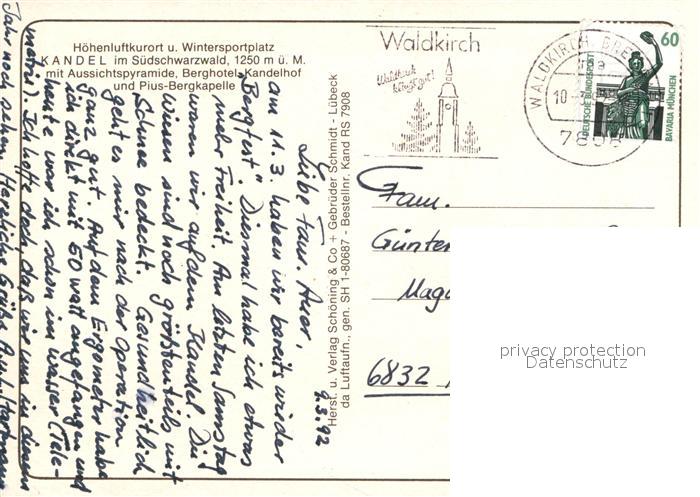 Höhenluftkurort u. Wintersportplatz
KANDEL im Südschwarzwald, 1250 m ü. M.
mit Aussichtspyramide, Berghotel Kandelhof
und Pius-Bergkapelle
Herst. u. Verlag Schöning & Co + Gebrüder Schmidt - Lübeck
da Luftaufn., gen. SH 1-80687 - Bestellnr. Kand RS 7908
9.3.92
Liebe Fam. Auer,
am 11.3. haben wir bereits wieder
"Bergfest". Diesmal habe ich etwas
mehr Freiheit. Am letzten Samstag
waren wir auf dem Kandel. Die
Wiesen sind noch größtenteils mit
Schnee bedeckt. Gesundheitlich
geht es mir nach der Operation
ganz gut. Auf dem Ergometer habe
ich direkt mit 50 Watt angefangen und
heute war ich schon im Wasser (Tele-
Ich hoffe doch, daß wir uns in diesem
Jahr noch sehen. Herzliche Grüße
Waldkirch
WALDKIRCH, BREI
10-
60
DEUTSCHE BUNDESPOST
BAVARIA MÜNCHEN
Fam.
Günter
Mag
6832
privacy protection
Datenschutz